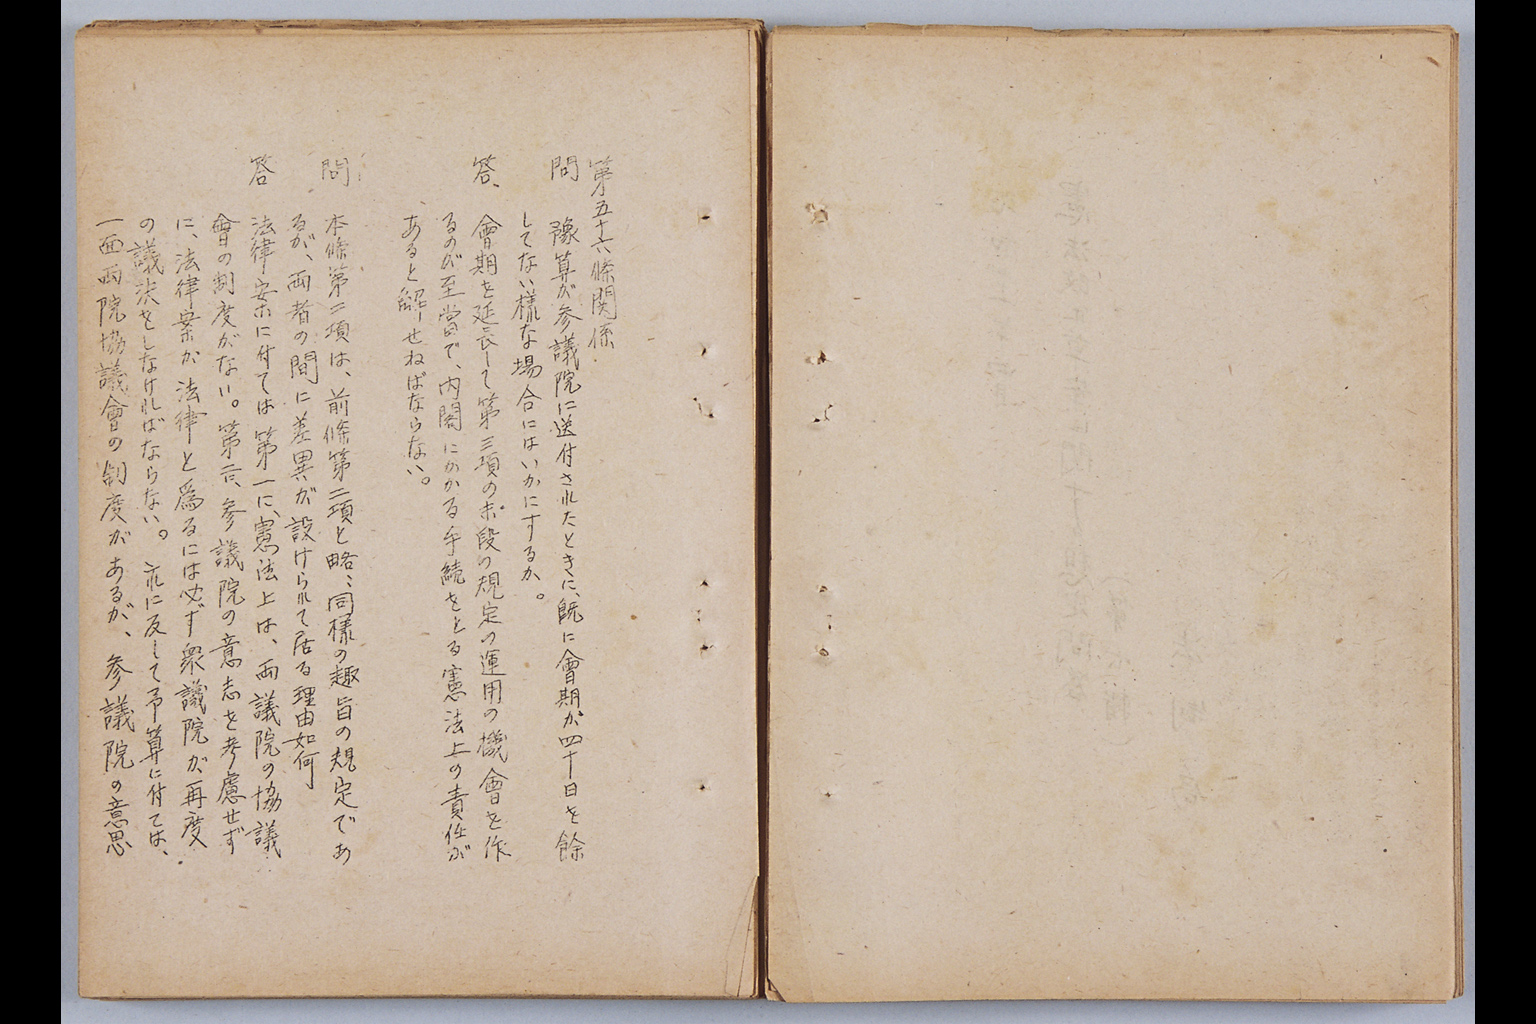 第五十六條関係
問　豫算が参議院に送付されたときに、既に會期が四十日を餘
してない様な場合にはいかにするか。
答、會期を延長して第三項の末段の規定の運用の機會を作
るのが至當で、内閣にかかる手続をとる憲法上の責任が
あると解せねばならない。
問　本條第二項は、前條第二項と略〻同様の趣旨の規定であ
るが、両者の間に差異が設けられて居る理由如何
答　法律案に付ては第一に、憲法上は、両議院の協議
會の制度がない。第二に、参議院の意志を考慮せず
に、法律案が法律と爲るには必ず衆議院が再度
の議決をしなければならない。これに反して予算に付ては、
一面両院協議會の制度があるが、参議院の意思